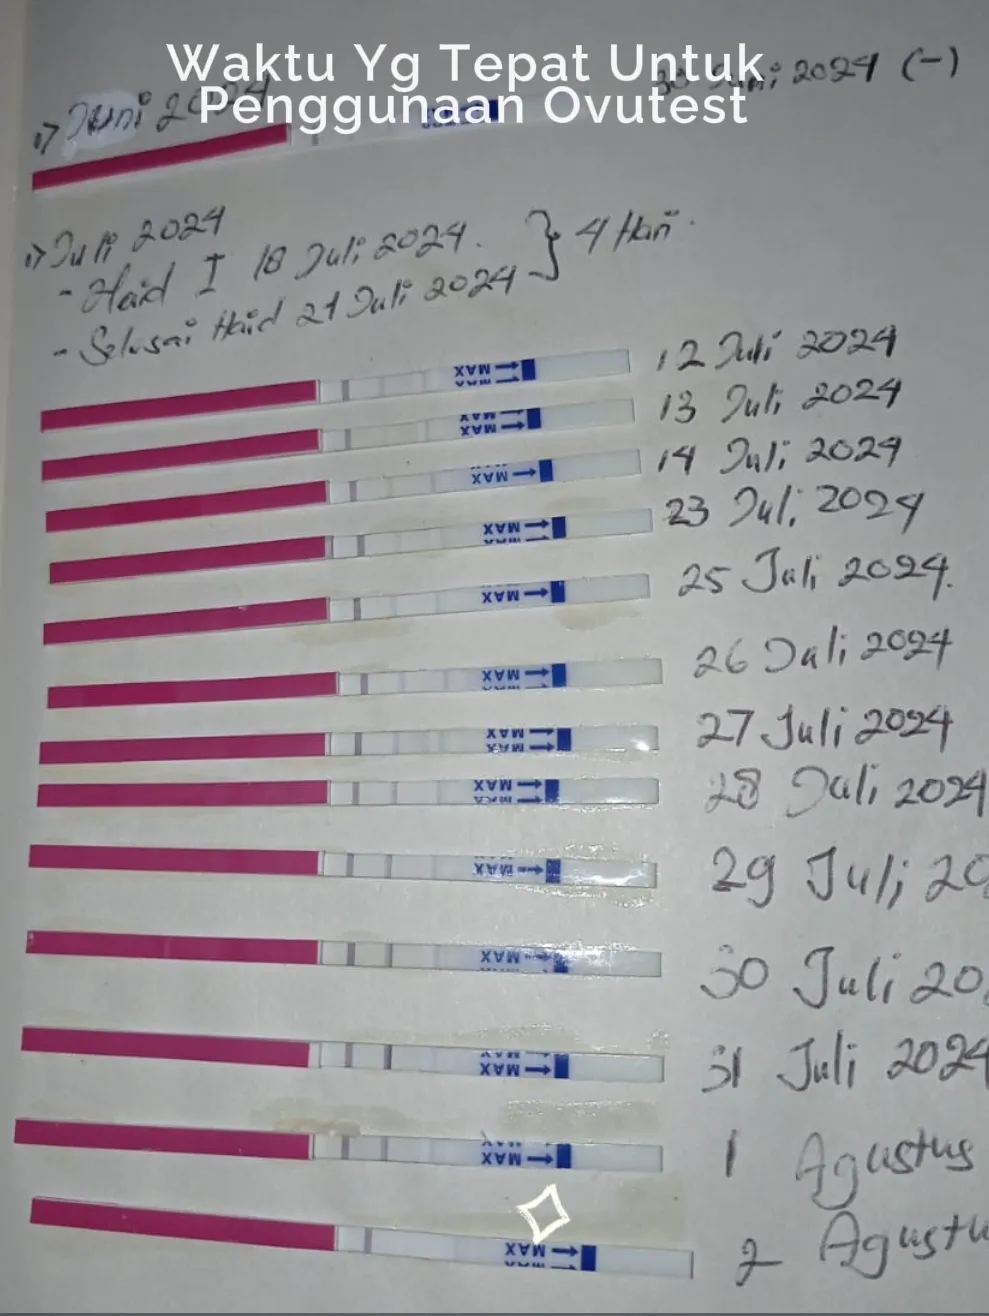 Waktu Yg Tepat Untuk
Penggunaan Ovutest
30 Juni 2024 (-)
Juni 2024
Juli 2024
- Haid I 18 Juli 2024. } 4 Hari.
- Selesai Haid 21 Juli 2024
MAX
12 Juli 2024
MAX
13 Juli 2024
MAX
14 Juli 2024
MAX
23 Juli 2024
MAX
25 Juli 2024.
MAX
26 Juli 2024
MAX
27 Juli 2024
MAX
28 Juli 2024
MAX
29 Juli 20
MAX
30 Juli 20
MAX
31 Juli 2024
MAX
1 Agustus
MAX
2 Agustu